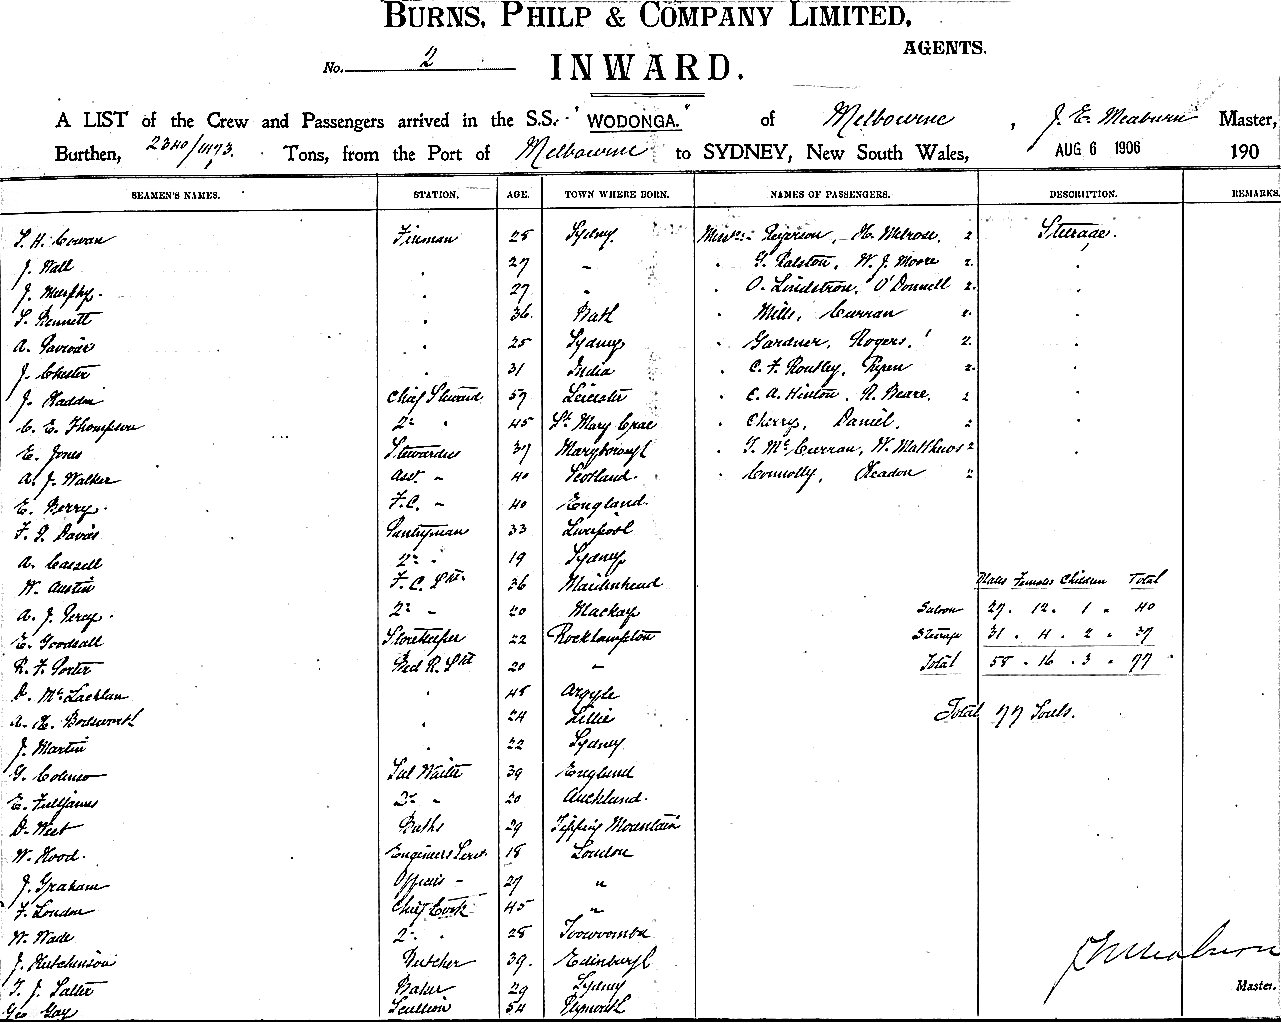 BURNS, PHILP & COMPANY LIMITED,
AGENTS.
No. 2
INWARD.
A LIST of the Crew and Passengers arrived in the S.S. "WODONGA." of Melbourne, J. E. Meaburn Master,
Burthen, 2340/1173. Tons, from the Port of Melbourne to SYDNEY, New South Wales, AUG 6 1906 190
SEAMEN'S NAMES. STATION. AGE. TOWN WHERE BORN. NAMES OF PASSENGERS. DESCRIPTION. REMARKS.
T. H. Cowan Fireman 28 Sydney H. Melrose. 2 Steerage.
J. Wall " 27 " " G. Ralston, W. J. Moore 2 "
J. Murphy. " 27 " " O. Lindstron, O'Donnell 2. "
T. Bennett " 36. Bath " Mills, Curran 2. "
A. " 25 Sydney " Gardner, Rogers. 2. "
J. Chester " 31 India " C. F. Routley, 2. "
J. Haddon Chief Steward 57 Leicester " C. A. Hinton, R. Beare. 2 "
C. E. Thompson 2nd " 45 St. Mary Cray " Cherry, Daniel. 2 "
E. Jones Stewardess 37 Maryborough " T. McCurran, W. Matthews 2 "
A. J. Walker Asst. " 40 Scotland. " Connolly, Headon 2
E. Berry. F.C. " 40 England.
F. J. Davis Pantryman 33 Liverpool
A. Cassell 2nd " 19 Sydney
W. Austin F. C. 36 Maidenhead
Males Females Children Total
A. J. Percy. 2nd " 20 Mackay
Saloon 27. 12. 1 " 40
E. Goodsall Storekeeper 22 Rockhampton
Steerage 31. 4. 2 " 37
R. F. Porter Bed R. 20 "
Total 58. 16. 3 " 77
D. McLachlan " 48 Argyle
A. H. Bodsworth " 24 Lillie
Total 77 Souls.
J. Martin " 22 Sydney
G. Colenso Sal Waiter 39 England
E. Fulljames 2nd " 20 Auckland.
D. West Baths 29 Mountain
W. Hood. Engineers Servt. 18 London
J. Graham Officers " 27 "
F. London Chief Cook 45 "
W. Wade 2nd " 28 Toowoomba
J. Hutchinson Butcher 39. Edinburgh
T. J. Salter Baker 29 Sydney
Geo Gay Scullion 54 Plymouth
J E Meaburn
Master.